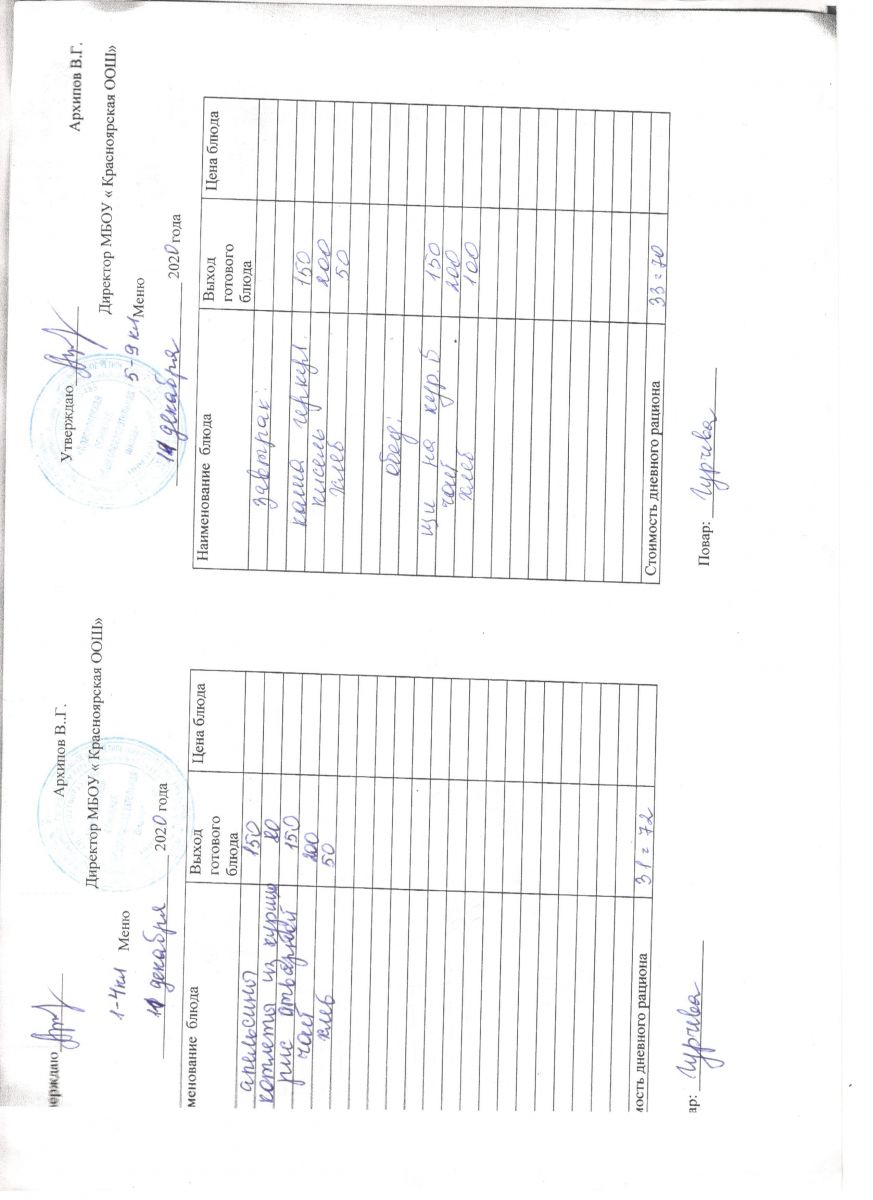 верждаю
Архипов В..Г.
Директор МБОУ « Красноярская ООШ»
1-4кл Меню
декабря 2020 года
менование блюда Выход готового блюда Цена блюда
апельсины 150
котлеты из курицы
рис отварной 150
чай 200
хлеб 50
мость дневного рациона 31=72
ар: Гурчева
Утверждаю
Архипов В.Г.
Директор МБОУ « Красноярская ООШ»
5-9кл Меню
декабря 2020 года
Наименование блюда Выход готового блюда Цена блюда
завтрак:
каша геркул. 150
кисель 200
хлеб 50
обед:
щи на кур.б 150
чай 200
хлеб 100
Стоимость дневного рациона 33=70
Повар: Гурчева